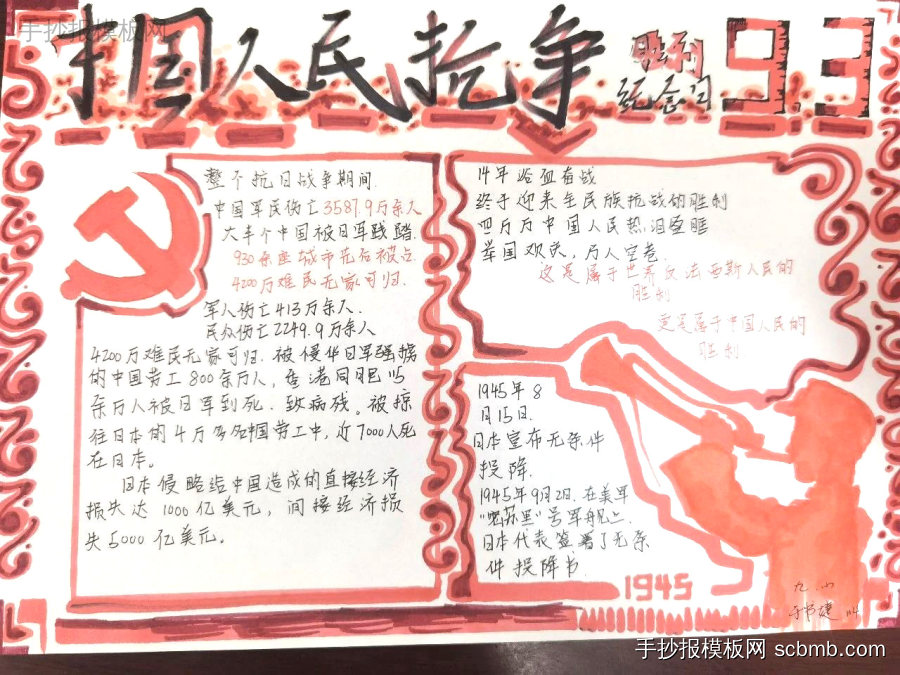 手抄报模板网
中国人民抗争
胜利
纪念日
9.3
整个抗日战争期间
中国军民伤亡3587.9万余人
大半个中国被日军践踏
930余座城市先后被占
4200万难民无家可归.
军人伤亡413万余人.
民众伤亡2249.9万余人
4200万难民无家可归.被侵华日军强掳
的中国劳工800余万人,香港同胞
余万人被日军 死.致病残。被掠
往日本的4万多名中国劳工中,近7000人死
在日本。
日本侵略给中国造成的直接经济
损失达1000亿美元,间接经济损
失5000亿美元。
14年浴血奋战
终于迎来全民族抗战的胜利
四万万中国人民热泪盈眶
举国欢庆,万人空巷.
这是属于世界反法西斯人民的
胜利
更是属于中国人民的
胜利.
1945年8
月15日.
日本宣布无条件
投降.
1945年9月2日.在美军
"密苏里"号军舰上
日本代表签署了无条
件投降书.
1945
手抄报模板网 scbmb.com